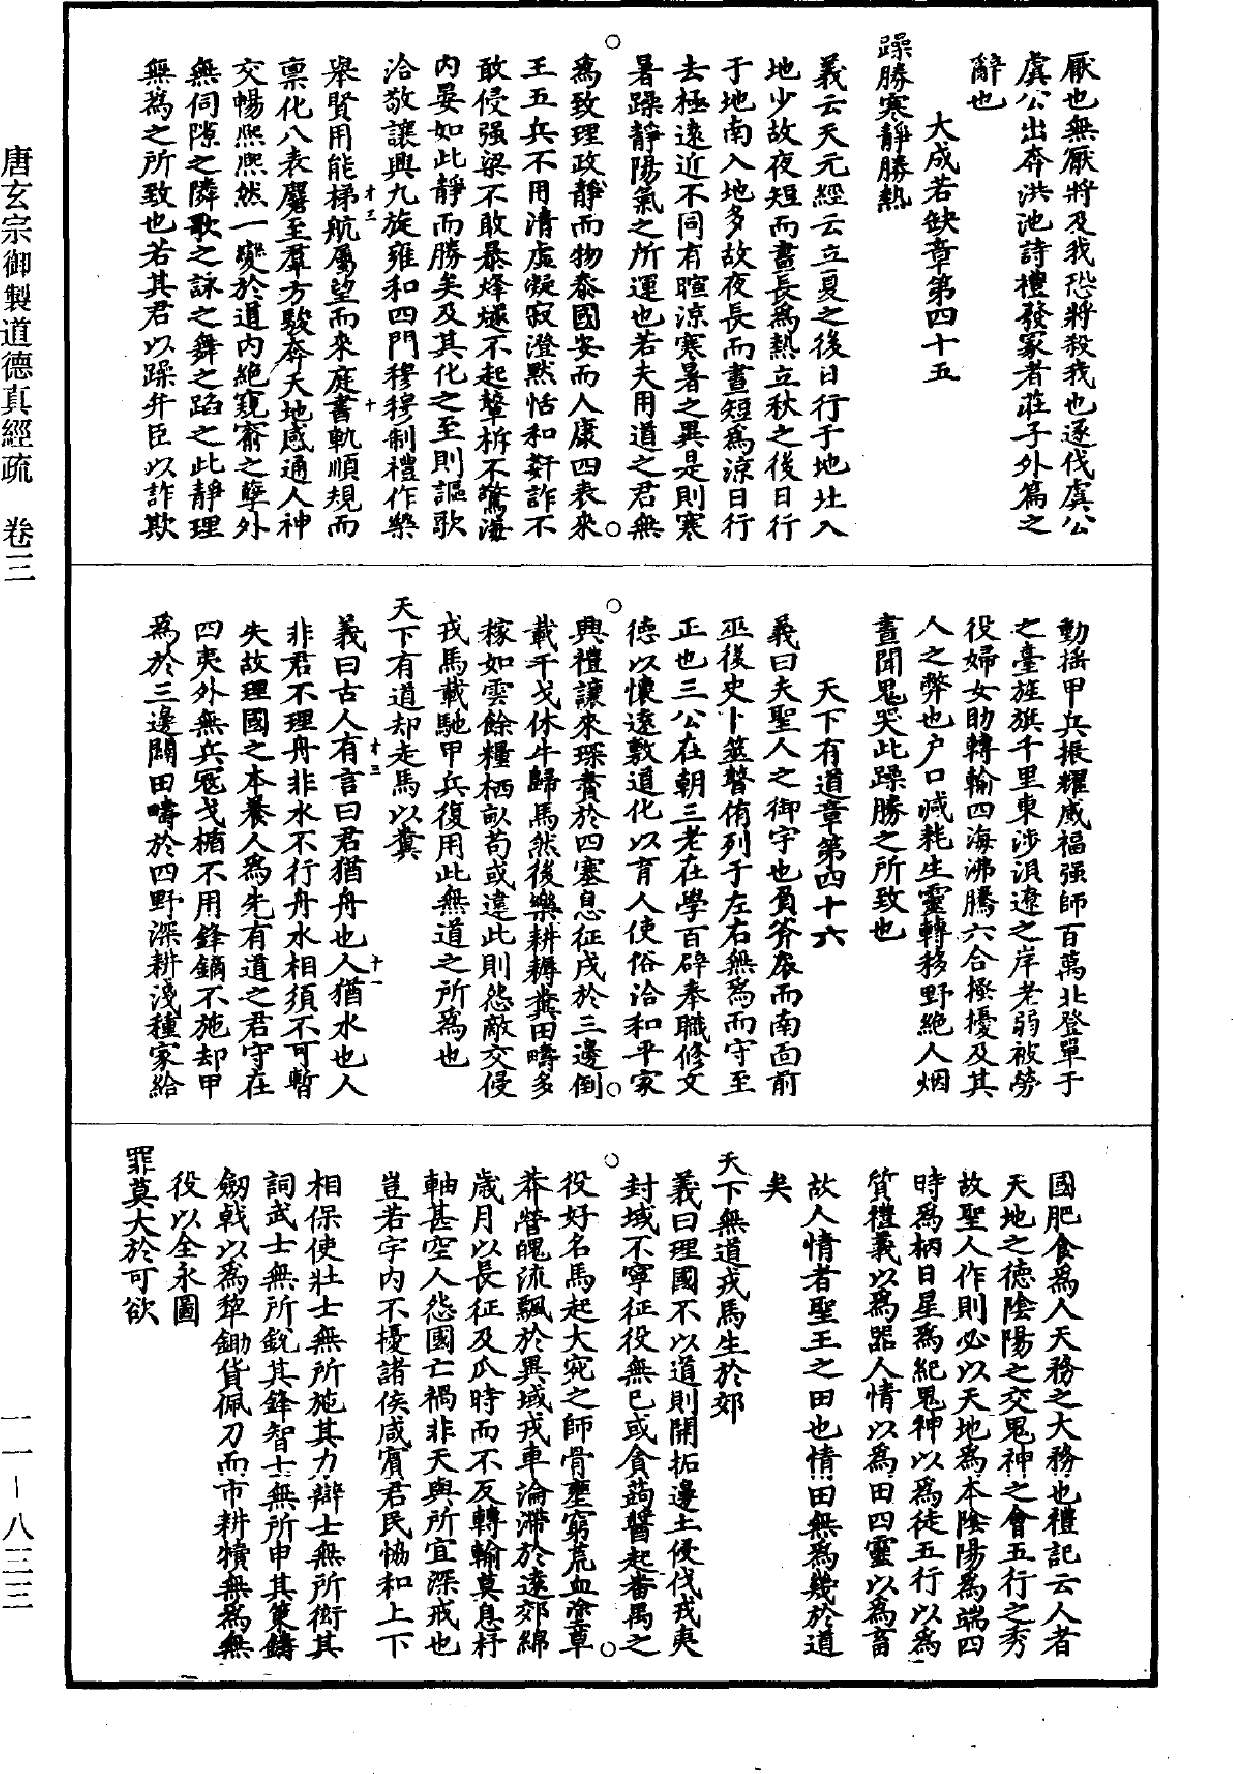 厭也無厭將及我恐將殺我也遂伐虞公
虞公出奔洪池詩禮發冢者莊子外篇之
辭也
大成若缺章第四十五
躁勝寒靜勝熱
義云天元經云立夏之後日行于地北入
地少故夜短而晝長爲熱立秋之後日行
于地南入地多故夜長而晝短爲涼日行
去極遠近不同有暄涼寒暑之異是則寒
暑躁靜陽氣之所運也若夫用道之君無
爲致理政靜而物泰國安而人康四表來
王五兵不用清虛凝寂澄默恬和姧詐不
敢侵强梁不敢暴烽燧不起鼙柝不驚海
內晏如此靜而勝矣及其化之至則謳歌
洽敬讓興九旋雍和四門穆穆制禮作樂
舉賢用能梯航屬望而來庭書軌順規而
禀化八表麕至羣方駿奔天地感通人神
交暢熙熙然一變於道內絕窺窬之孽外
無伺隙之隣歌之詠之舞之蹈之此靜理
無爲之所致也若其君以躁弁臣以詐欺
動揺甲兵振耀威福强師百萬北登單于
之臺旌旗千里東涉浿遼之岸老弱被勞
役婦女助轉輸四海沸騰六合極擾及其
人之弊也户口減耗生靈轉移野絕人烟
晝聞鬼哭此躁勝之所致也
天下有道章第四十六
義曰夫聖人之御宇也負斧扆而南面前
巫後史卜筮瞽侑列于左右無爲而守至
正也三公在朝三老在學百辟奉職修文
德以懷遠敷道化以育人使俗洽和平家
興禮讓來琛賮於四塞息征戍於三邊倒
載干戈休牛歸馬然後樂耕耨糞田疇多
稼如雲餘糧栖畝苟或違此則怨敵交侵
戎馬載馳甲兵復用此無道之所爲也
天下有道却走馬以糞
義曰古人有言曰君猶舟也人猶水也人
非君不理舟非水不行舟水相須不可暫
失故理國之本養人爲先有道之君守在
四夷外無兵寇戈楯不用鋒鏑不施却甲
爲於三邊闢田疇於四野深耕淺種家給
國肥食爲人天務之大務也禮記云人者
天地之德陰陽之交鬼神之會五行之秀
故聖人作則必以天地爲本陰陽爲端四
時爲柄日星爲紀鬼神以爲徒五行以爲
質禮義以爲器人情以爲田四靈以爲畜
故人情者聖王之田也情田無爲幾於道
矣
天下無道戎馬生於郊
義曰理國不以道則開拓邊土侵伐戎夷
封域不寧征役無已或貪蒟醬起番禺之
役好名馬起大宛之師骨壅窮荒血塗草
莽營魄流飄於異域戎車淪滯於遠郊綿
歲月以長征及瓜時而不反轉輸莫息杼
軸甚空人怨國亡禍非天與所宜深戒也
豈若宇內不擾諸侯咸賓君民恊和上下
相保使壯士無所施其力辯士無所銜其
詞武士無所銳其鋒智士無所申其策鑄
劒戟以爲犂鋤貨佩刀而市耕犢無爲無
役以全永圖
罪莫大於可欲
唐玄宗御製道德真經疏 卷三
一一－八三三
十三
十
十三
十一